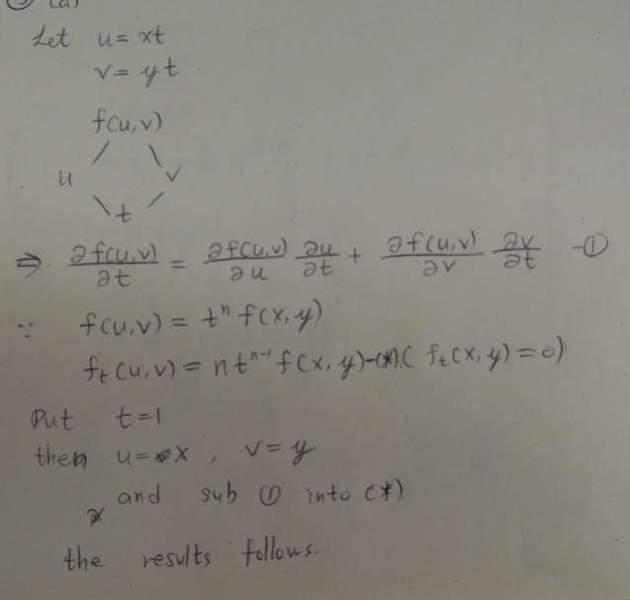 ③ (a)
Let u = xt
v = yt
f(u,v)
u v
t
⇒ ∂f(u,v)/∂t = ∂f(u,v)/∂u ∂u/∂t + ∂f(u,v)/∂v ∂v/∂t -①
∵ f(u,v) = tⁿ f(x,y)
fₜ(u,v) = n tⁿ⁻¹ f(x,y) -(*) ( fₜ(x,y) = 0)
Put t=1
then u = x , v = y
and sub ① into (*)
the results follows.